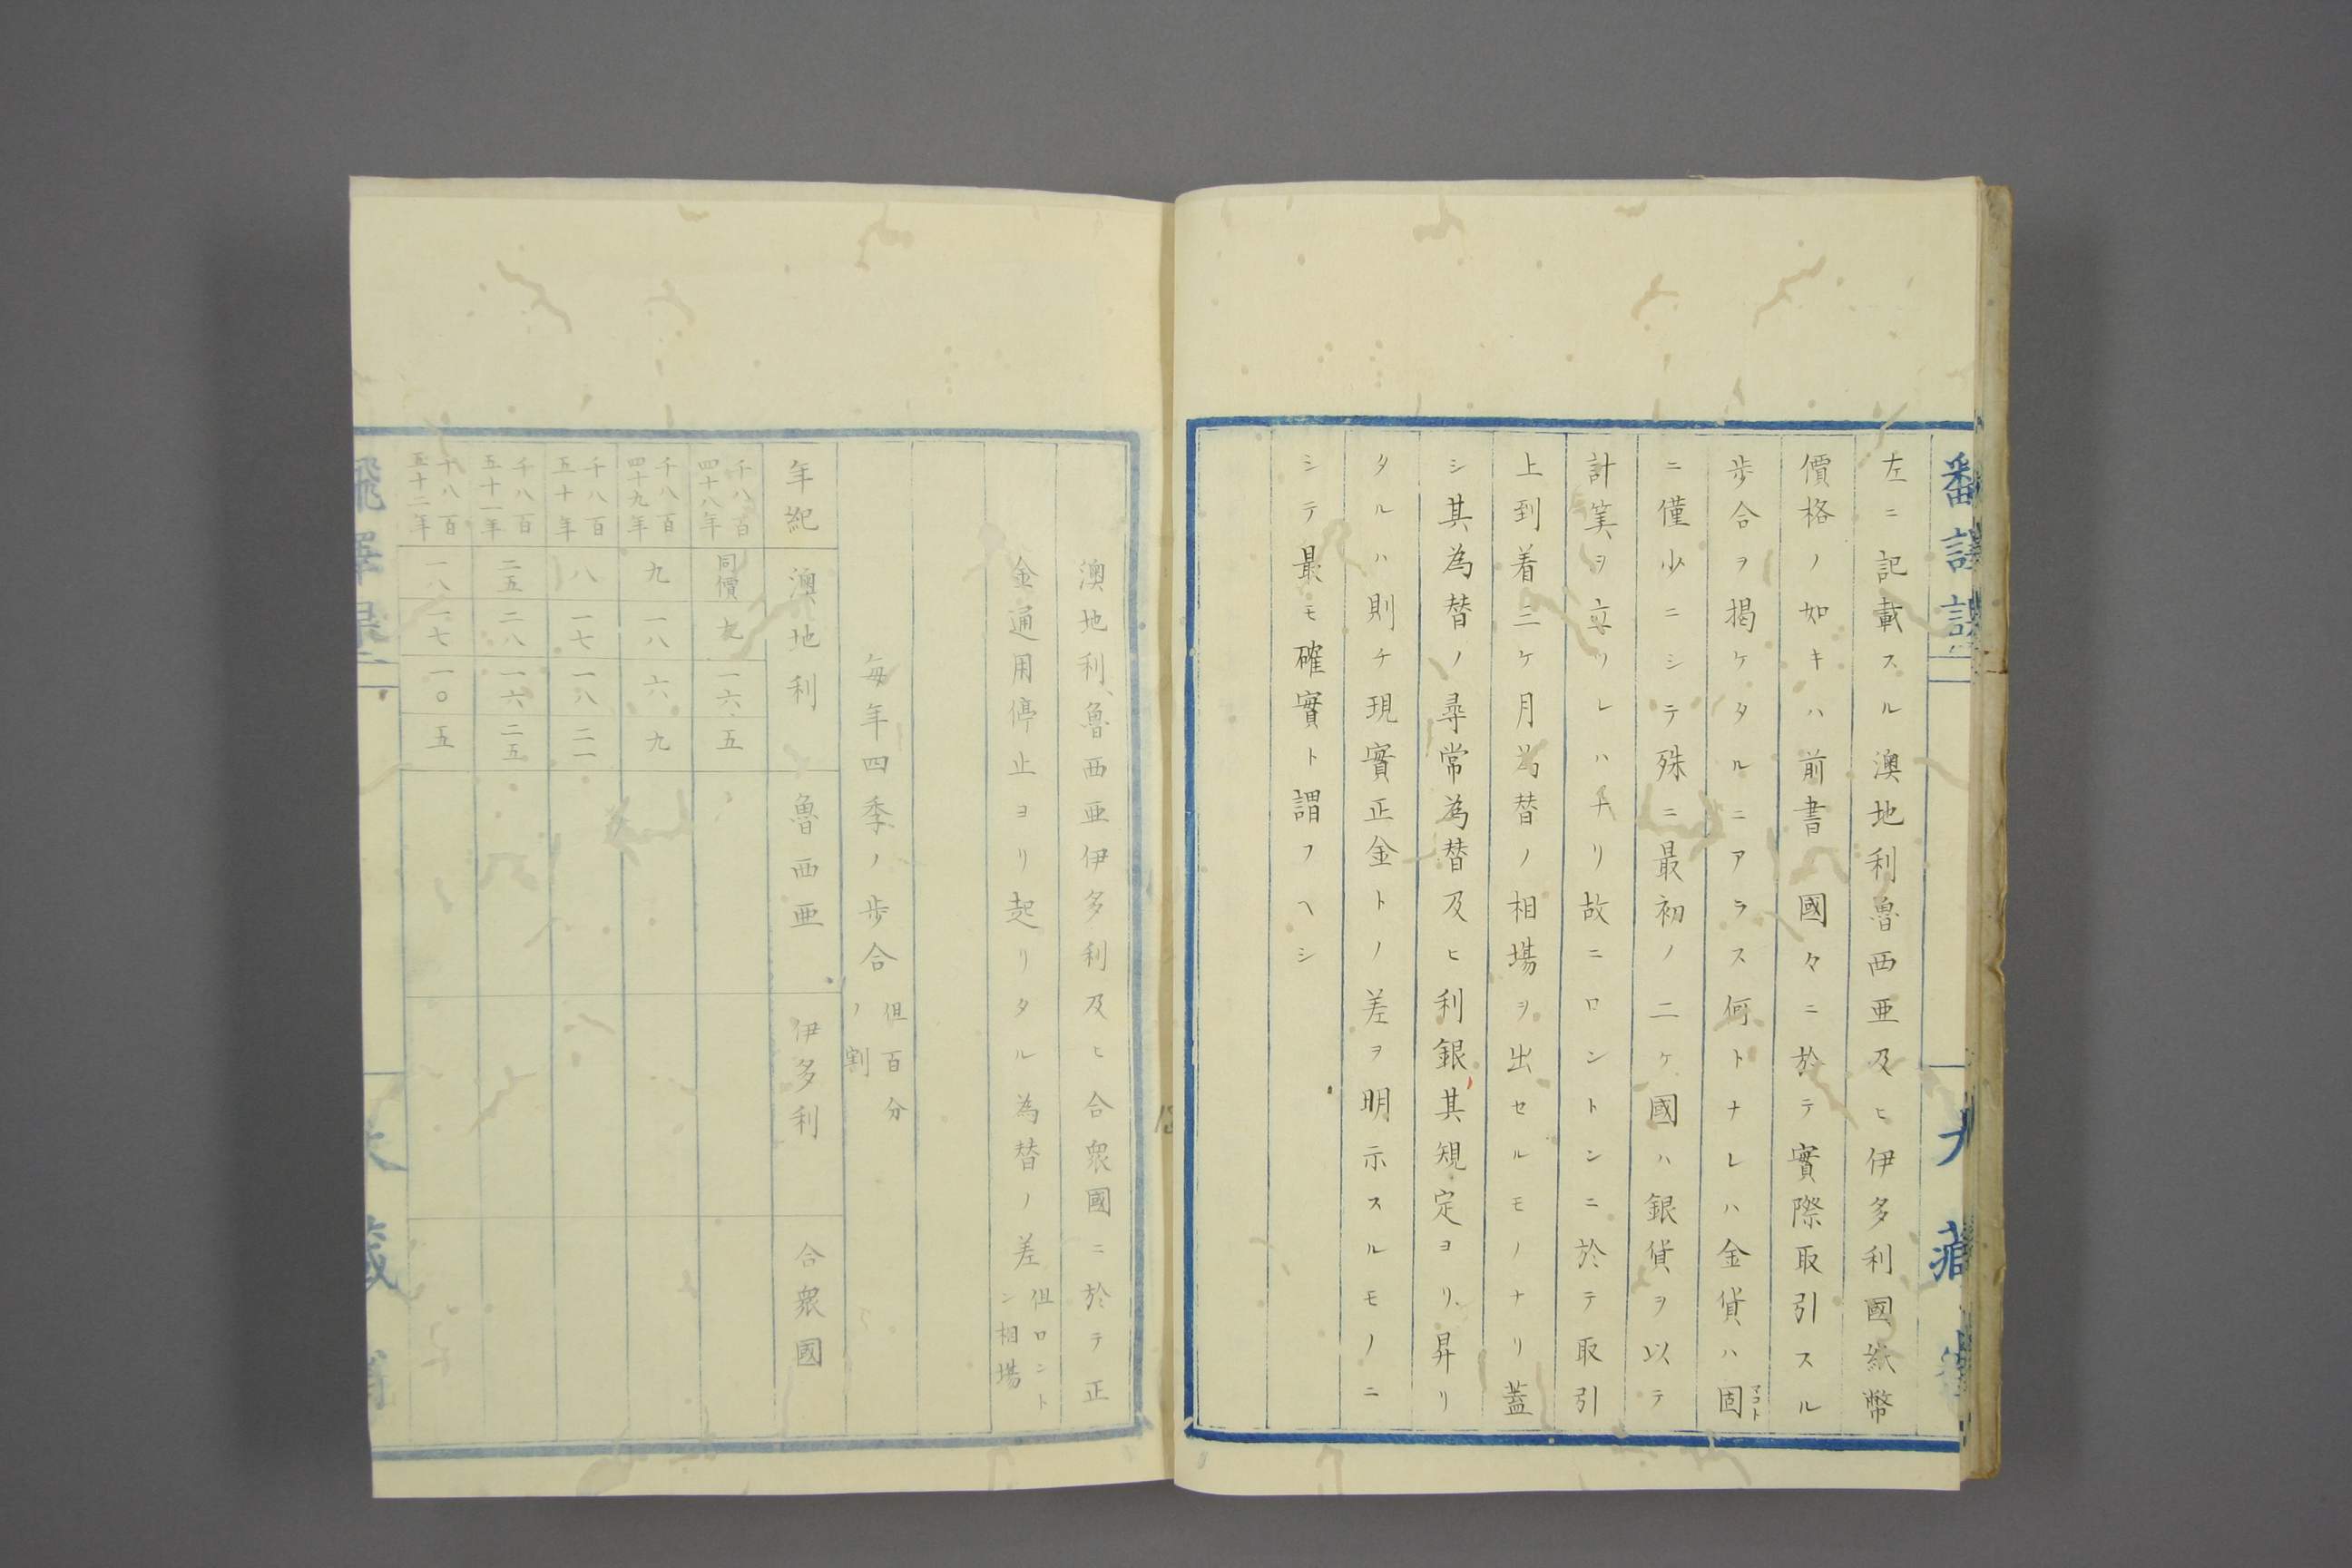 左ニ記載スル澳地利魯西亜及ヒ伊多利國紙幣
價格ノ如キハ前書國々ニ於テ實際取引スル
歩合ヲ掲ケタルニアラス何トナレハ金貨ハ固
マコト
ニ僅少ニシテ殊ニ最初ノ二ケ國ハ銀貨ヲ以テ
計筭ヲ立ツレハナリ故ニロントンニ於テ取引
上到着三ケ月為替ノ相場ヲ出セルモノナリ蓋
シ其為替ノ尋常為替及ヒ利銀其規定ヨリ昇リ
タルハ則チ現實正金トノ差ヲ明示スルモノニ
シテ最モ確實ト謂フヘシ
澳地利、魯西亜伊多利及ヒ合衆國ニ於テ正
金通用停止ヨリ起リタル為替ノ差
但ロント
ン相場
毎年四季ノ歩合
但百分
ノ割
年紀 澳地利 魯西亜 伊多利 合衆國
千八百四十八年 同價 九 一六、五
千八百四十九年 九 一八 六 九
千八百五十年 八 一七 一八 二一
千八百五十一年 二五 二八 一六 二五
千八百五十二年 一八 一七 一〇 五
大藏